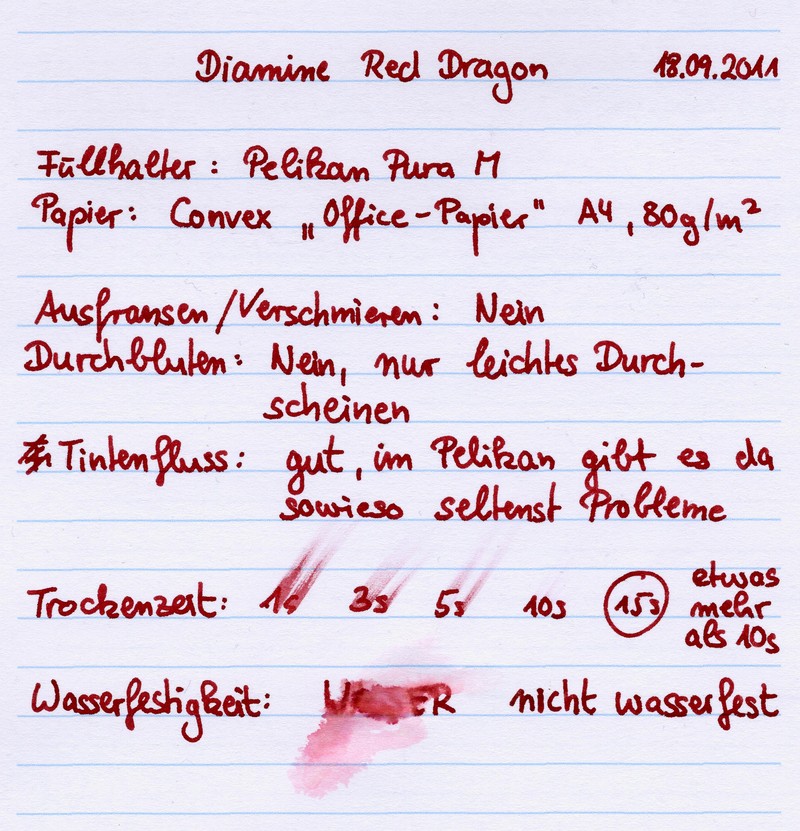 Diamine Red Dragon 18.09.2011
Füllhalter: Pelikan Pura M
Papier: Convex „Office-Papier" A4, 80g/m²
Ausfransen/Verschmieren: Nein
Durchbluten: Nein, nur leichtes Durch-
scheinen
Tintenfluss: gut, im Pelikan gibt es da
sowieso seltenst Probleme
Trockenzeit: 1s 3s 5s 10s 15s etwas
mehr
als 10s
Wasserfestigkeit: nicht wasserfest